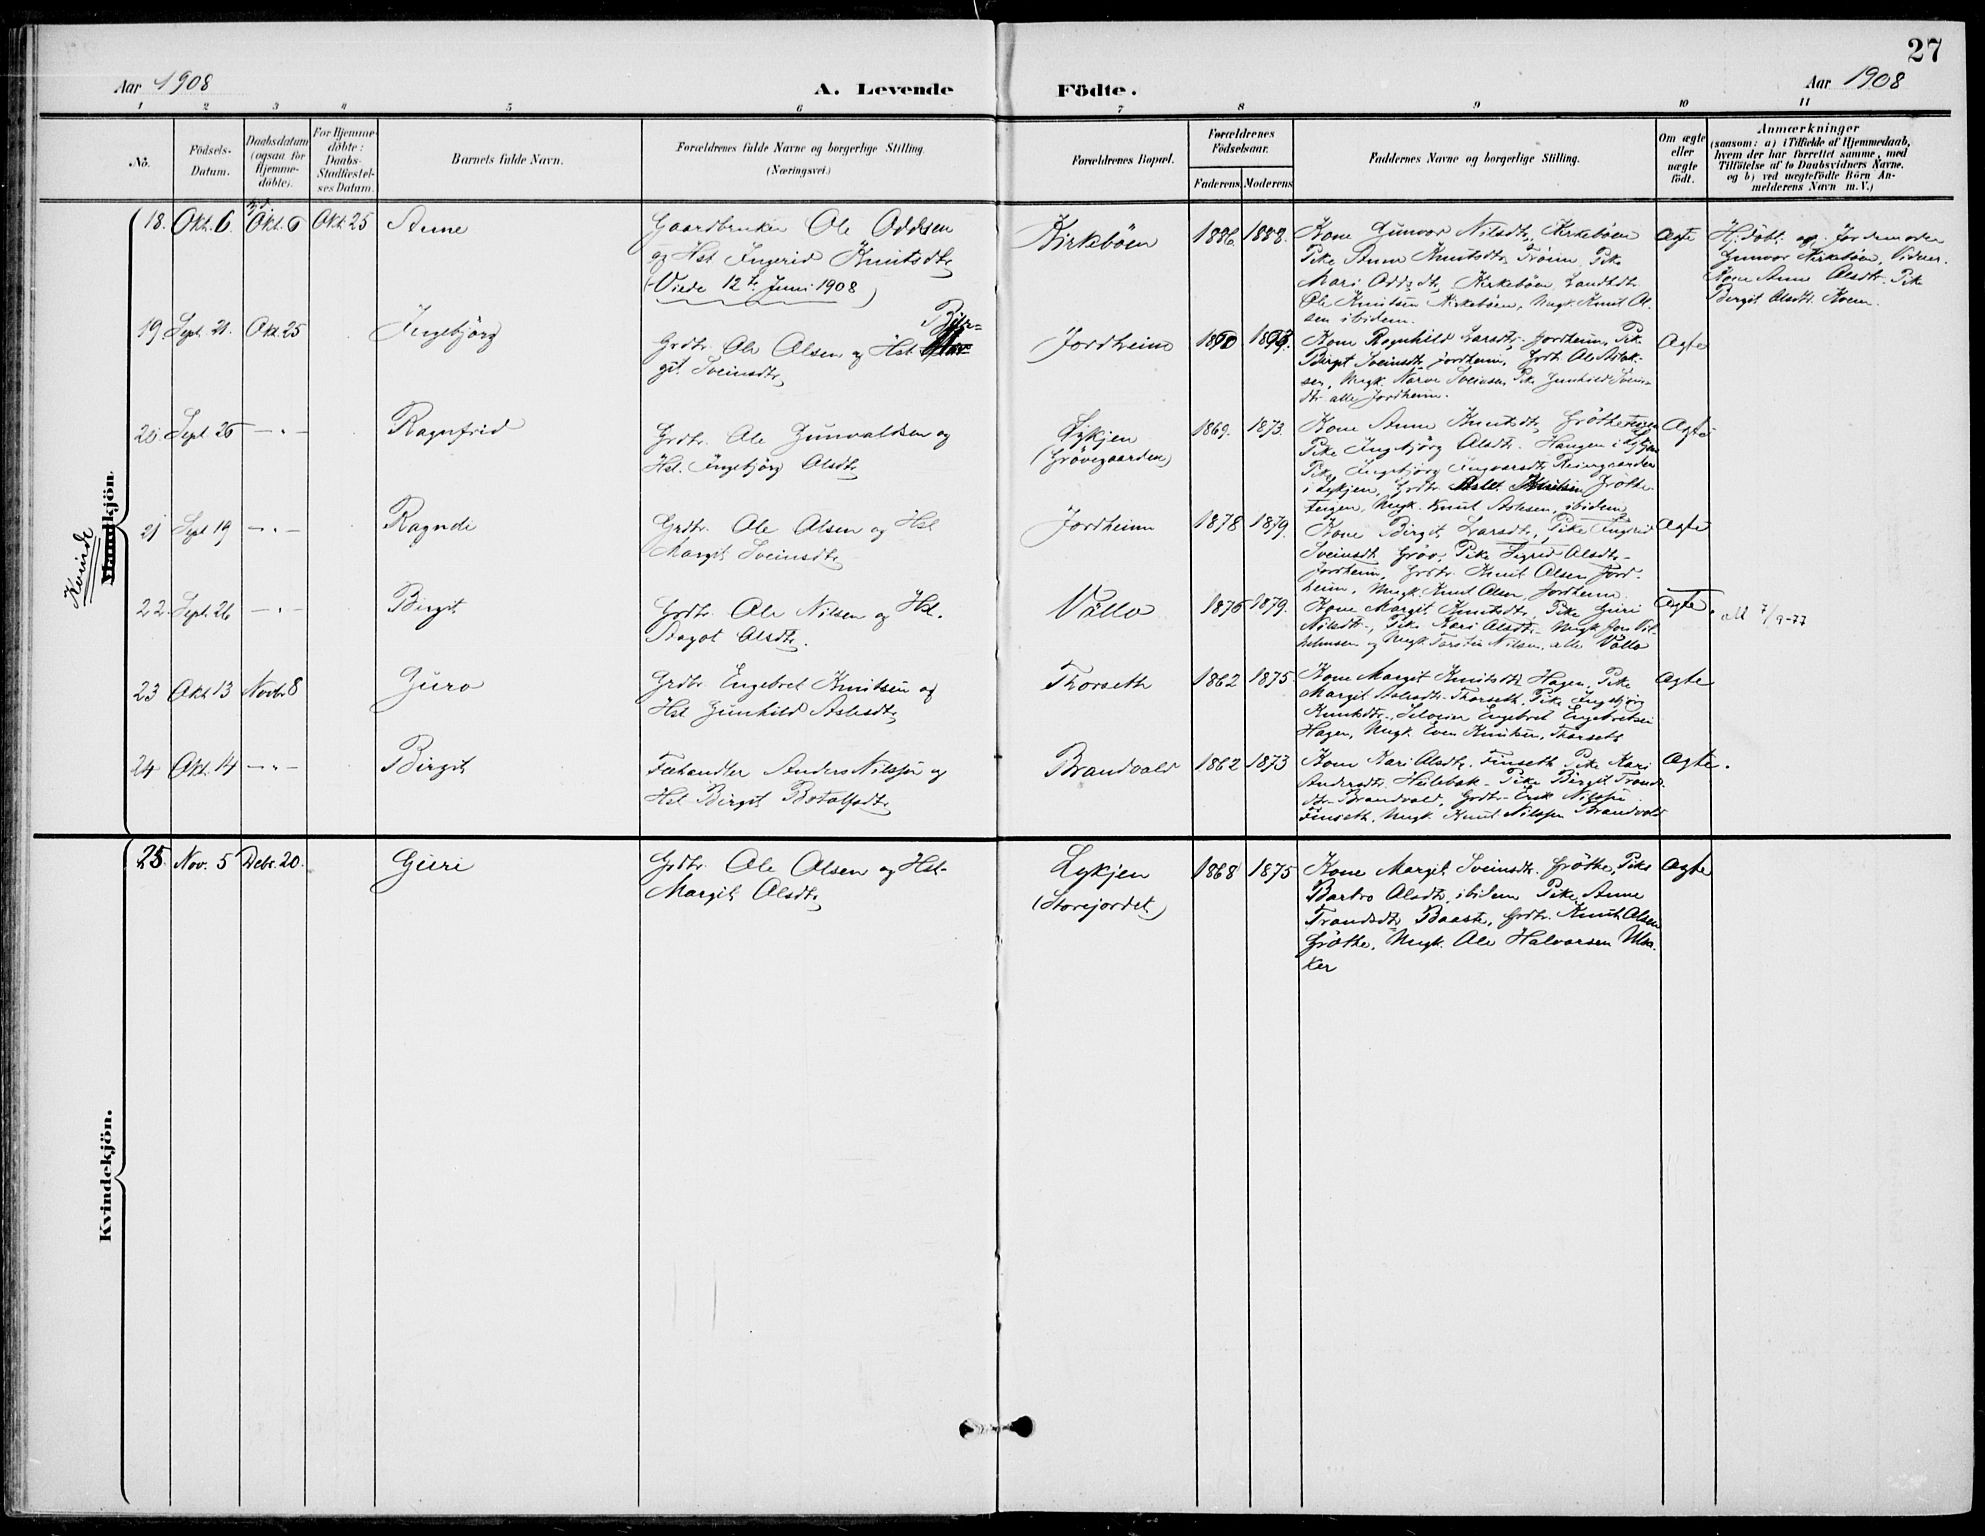 27
Aar 1908
A. Levende Födte.
Aar 1908
1 2 3 4 5 6 7 8 9 10 11
No.
Födsels-
Datum.
Daabsdatum
(ogsaa for
Hjemme-
döbte).
For Hjemme-
döbte:
Daabs-
Stadfæstel-
ses Datum.
Barnets fulde Navn.
Forældrenes fulde Navne og borgerlige Stilling.
(Næringsvei.)
Forældrenes Bopæl.
Forældrenes
Födselsaar.
Faderens Moderens
Faddernes Navne og borgerlige Stilling.
Om ægte
eller
uægte
födt.
Anmærkninger
(saasom: a) i Tilfælde af Hjemmedaab,
hvem der har forrettet samme, med
Tilföielse af to Daabsvidners Navne,
og b) ved uægtefödte Börn An-
melderens Navn m. V.)
Kvinde
Mandkjön.
18. Okt. 6. Okt. 6 Okt. 25 Anne
Gaardbruker Ole Oddsen
og Hst Ingerid Knutsdtr
(Viede 12te Juni 1908)
Kirkeböen 1886 1888.
Kone Gunvor Nilsdtr, Kirkeböen
Pike Anne Knutsdtr Tröim, Pike
Mari Oddsdtr, Kirkeböen,
Ole Knutsen Kirkeböen, Ungk. Knut Ol-
sen ibidem.
Ægte
Hj.döbt af Jordemoder
Gunvor Kirkeböen, Vidner
Kone Anne Olsdtr. Pike
Birgit Olsdtr Kvem.
19 Sept. 21. Okt. 25 Ingebjörg
Grdbr. Ole Olsen og Hst Bir-
git Sveinsdtr
Jordheim
Kone Ragnhild Larsdtr, Jordheim, Pike
Birgit Sveinsdtr Jordheim, Grdbr. Ole Aslak-
sen, Ungk. Narve Sveinsen, Pike Gunhild Svein-
dtr alle Jordheim.
Ægte
20 Sept. 25 — „ — Ragnfrid
Grdbr. Ole Gunvaldsen og
Hst. Ingebjörg Olsdtr
Lykjen
(Grövegaarden)
1869. 1873.
Kone Anne Knutsdtr, Gröthe
Pike Ingebjörg Olsdtr. Haugen i Lykjen
Pike Ingebjörg Ingvarsdtr
i Lykjen, Grdbr. Aslet Knutsen Gröthe-
Ungk. Knut Aslesen, ibidem
Ægte
21 Sept 19 — „ — Ragndi
Grdbr. Ole Olsen og Hst
Margit Sveinsdtr
Jordheim 1878 1879.
Kone Birgit Larsdtr, Pike Ingrid
Sveinsdtr Gröv, Pike Sigrid Olsdtr-
Jordheim, Grdbr. Knut Olsen Jord-
heim, Ungk. Knut Olsen Jordheim.
Ægte
22. Sept. 26 — „ — Birgit
Grdbr. Ole Nilsen og Hst.
Dagot Olsdtr.
Völlo 1876 1879.
Kone Margit Knutsdtr, Pike Guri
Nilsdtr, Pike Kari Olsdtr- Ungk. Jon Vil-
helmsen og Ungk. Torstein Nilsen, alle Völlo
Ægte.
7/9-77
23 Okt 13 Novbr 8 Guro
Grdbr. Engebret Knutsen og
Hst Gunhild Aslesdtr
Thorseth 1862 1875
Kone Margit Knutsdtr Hagen, Pike
Margit Aslesdtr Thorseth, Pike Ingebjörg
Knutsdtr, Selveier Engebret Engebretsen
Hagen, Ungk. Even Knutsen, Thorseth
Ægte
24 Okt. 14 — „ — Birgit
Fæhandler Anders Nilssön og
Hst Birgit Botolfsdtr
Brandvold 1862 1873
Kone Kari Olsdtr. Finseth Pike Kari
Andersdtr Heilebak- Pike Birgit Trond-
dtr- Brandvold, Grdbr- Erik Nilssön
Finseth, Ungk. Knut Nilssön Brandvold
Ægte.
Kvindekjön.
25. Nov. 5 Debr. 20. Guri
Grdbr. Ole Olsen og Hst-
Margit Olsdtr
Lykjen
(Storejordet)
1868 1875
Kone Margit Sveinsdtr. Gröthe, Pike
Barbro Olsdtr, ibidem Pike Anne
Trondsdtr, Baaste, Grdbr. Knut Olsen
Gröthe, Ungk. Ole Halvorsen Moe-
ker
Ægte